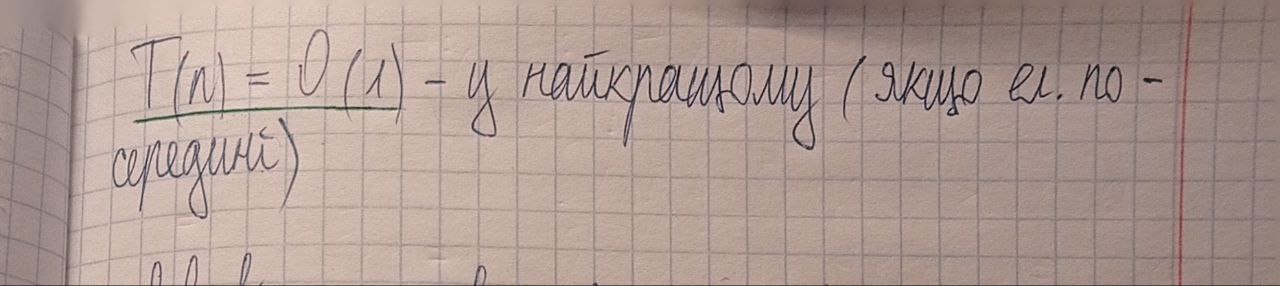 T(n) = O(1) - у найкращому (якщо ел. по-
середині)